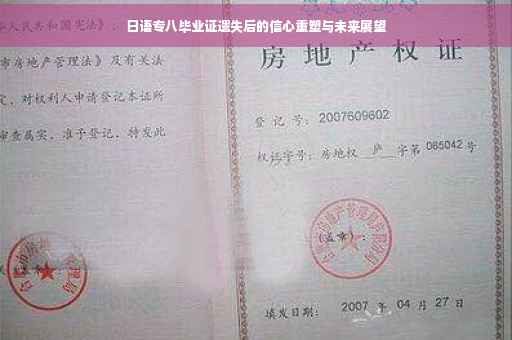 日语专八毕业证遗失后的信心重塑与未来展望
华人民共和国宪法》
市房地产管理法》及有关法
定，对权利人申请登记本证所
审查属实，准予登记，特发此
房地产权证
登记号：2007609602
权证字号：房地权 庐 字第 085042 号
（盖章）：
填发日期：2007 年 04 月 27 日